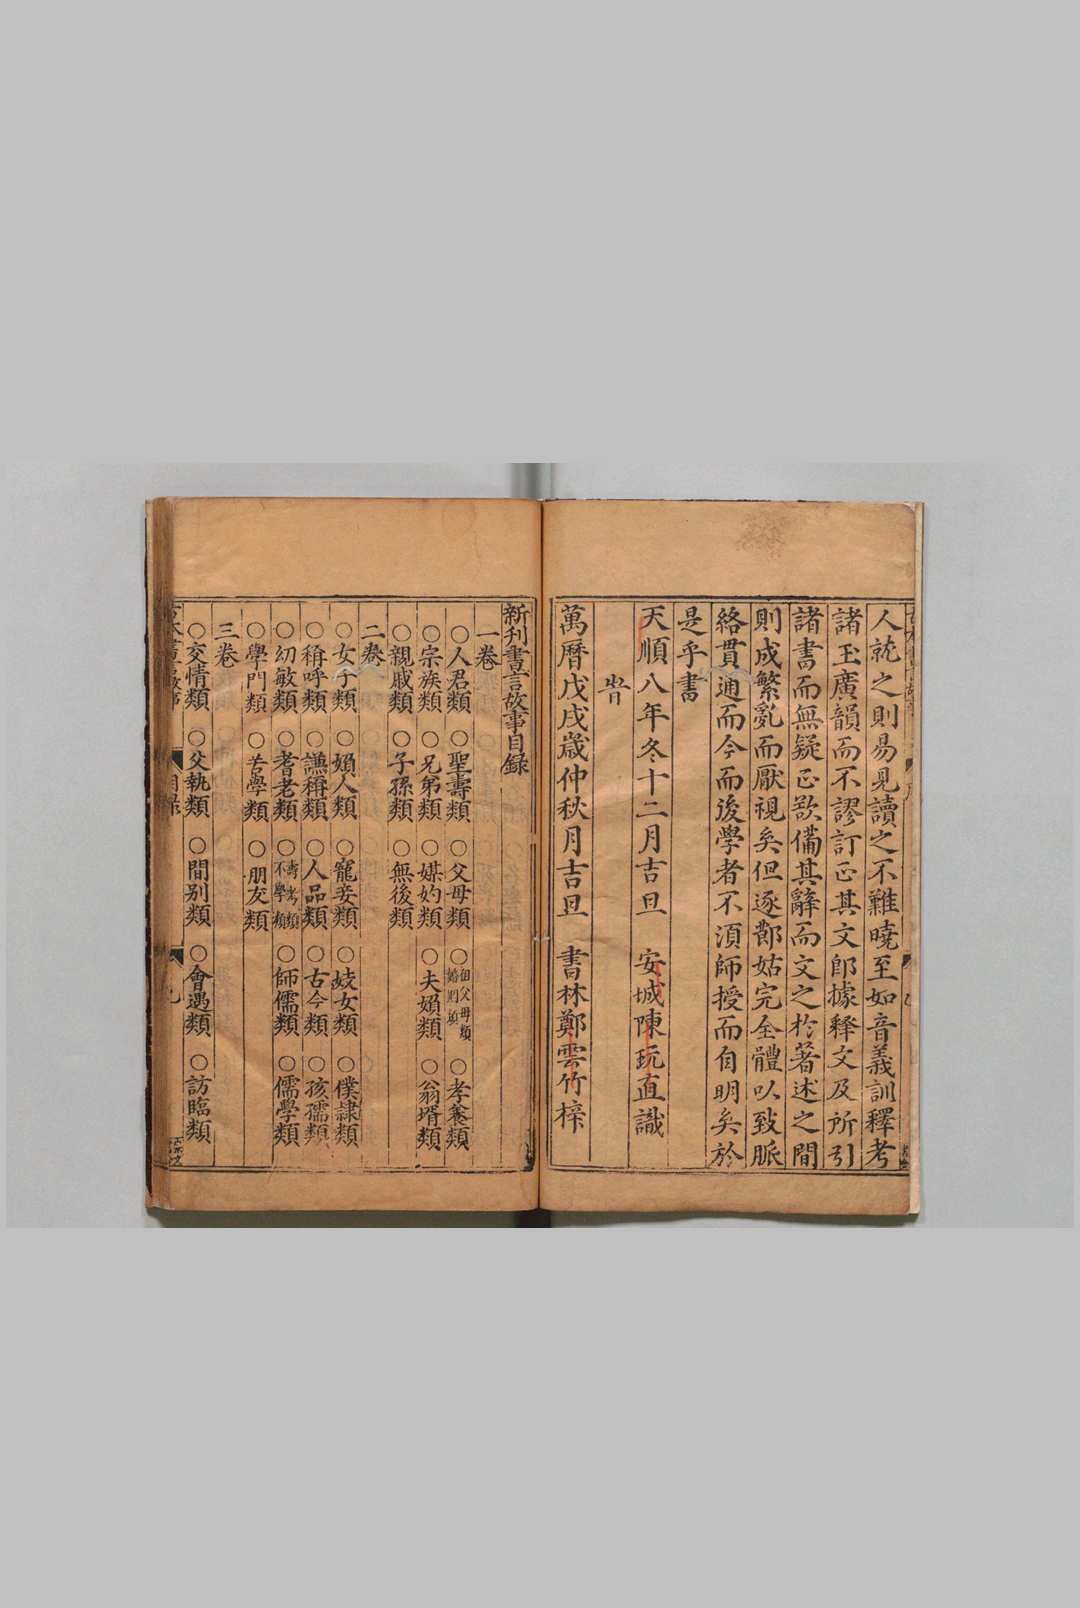 人就之則易見讀之不難曉至如音義訓釋考
諸玉廣韻而不謬訂正其文郎據釋文及所引
諸書而無疑正欲備其辭而文之於著述之間
則成繁亂而厭視矣但逐鄷姑完全體以致脈
絡貫通而今而後學者不湏師授而自明矣於
是乎書
天順八年冬十二月吉旦 安城陳玩直識
旹
萬曆戊戌歲仲秋月吉旦 書林鄭雲竹梓
新刊書言故事目録
一卷
○人君類 ○聖壽類 ○父母類 ○ 父母類 ○孝養類
○宗族類 ○兄弟類 ○媒妁類 ○夫婦類 ○翁壻類
○親戚類 ○子孫類 ○無後類
二卷
○女子類 ○婦人類 ○寵妾類 ○妓女類 ○僕隷類
○稱呼類 ○謙稱類 ○人品類 ○古今類 ○孩孺類
○幼敏類 ○耆老類 ○壽考類 不學類 ○師儒類 ○儒學類
○學門類 ○苦學類 ○朋友類
三卷
○交情類 ○父執類 ○間别類 ○會遇類 ○訪臨類
目録